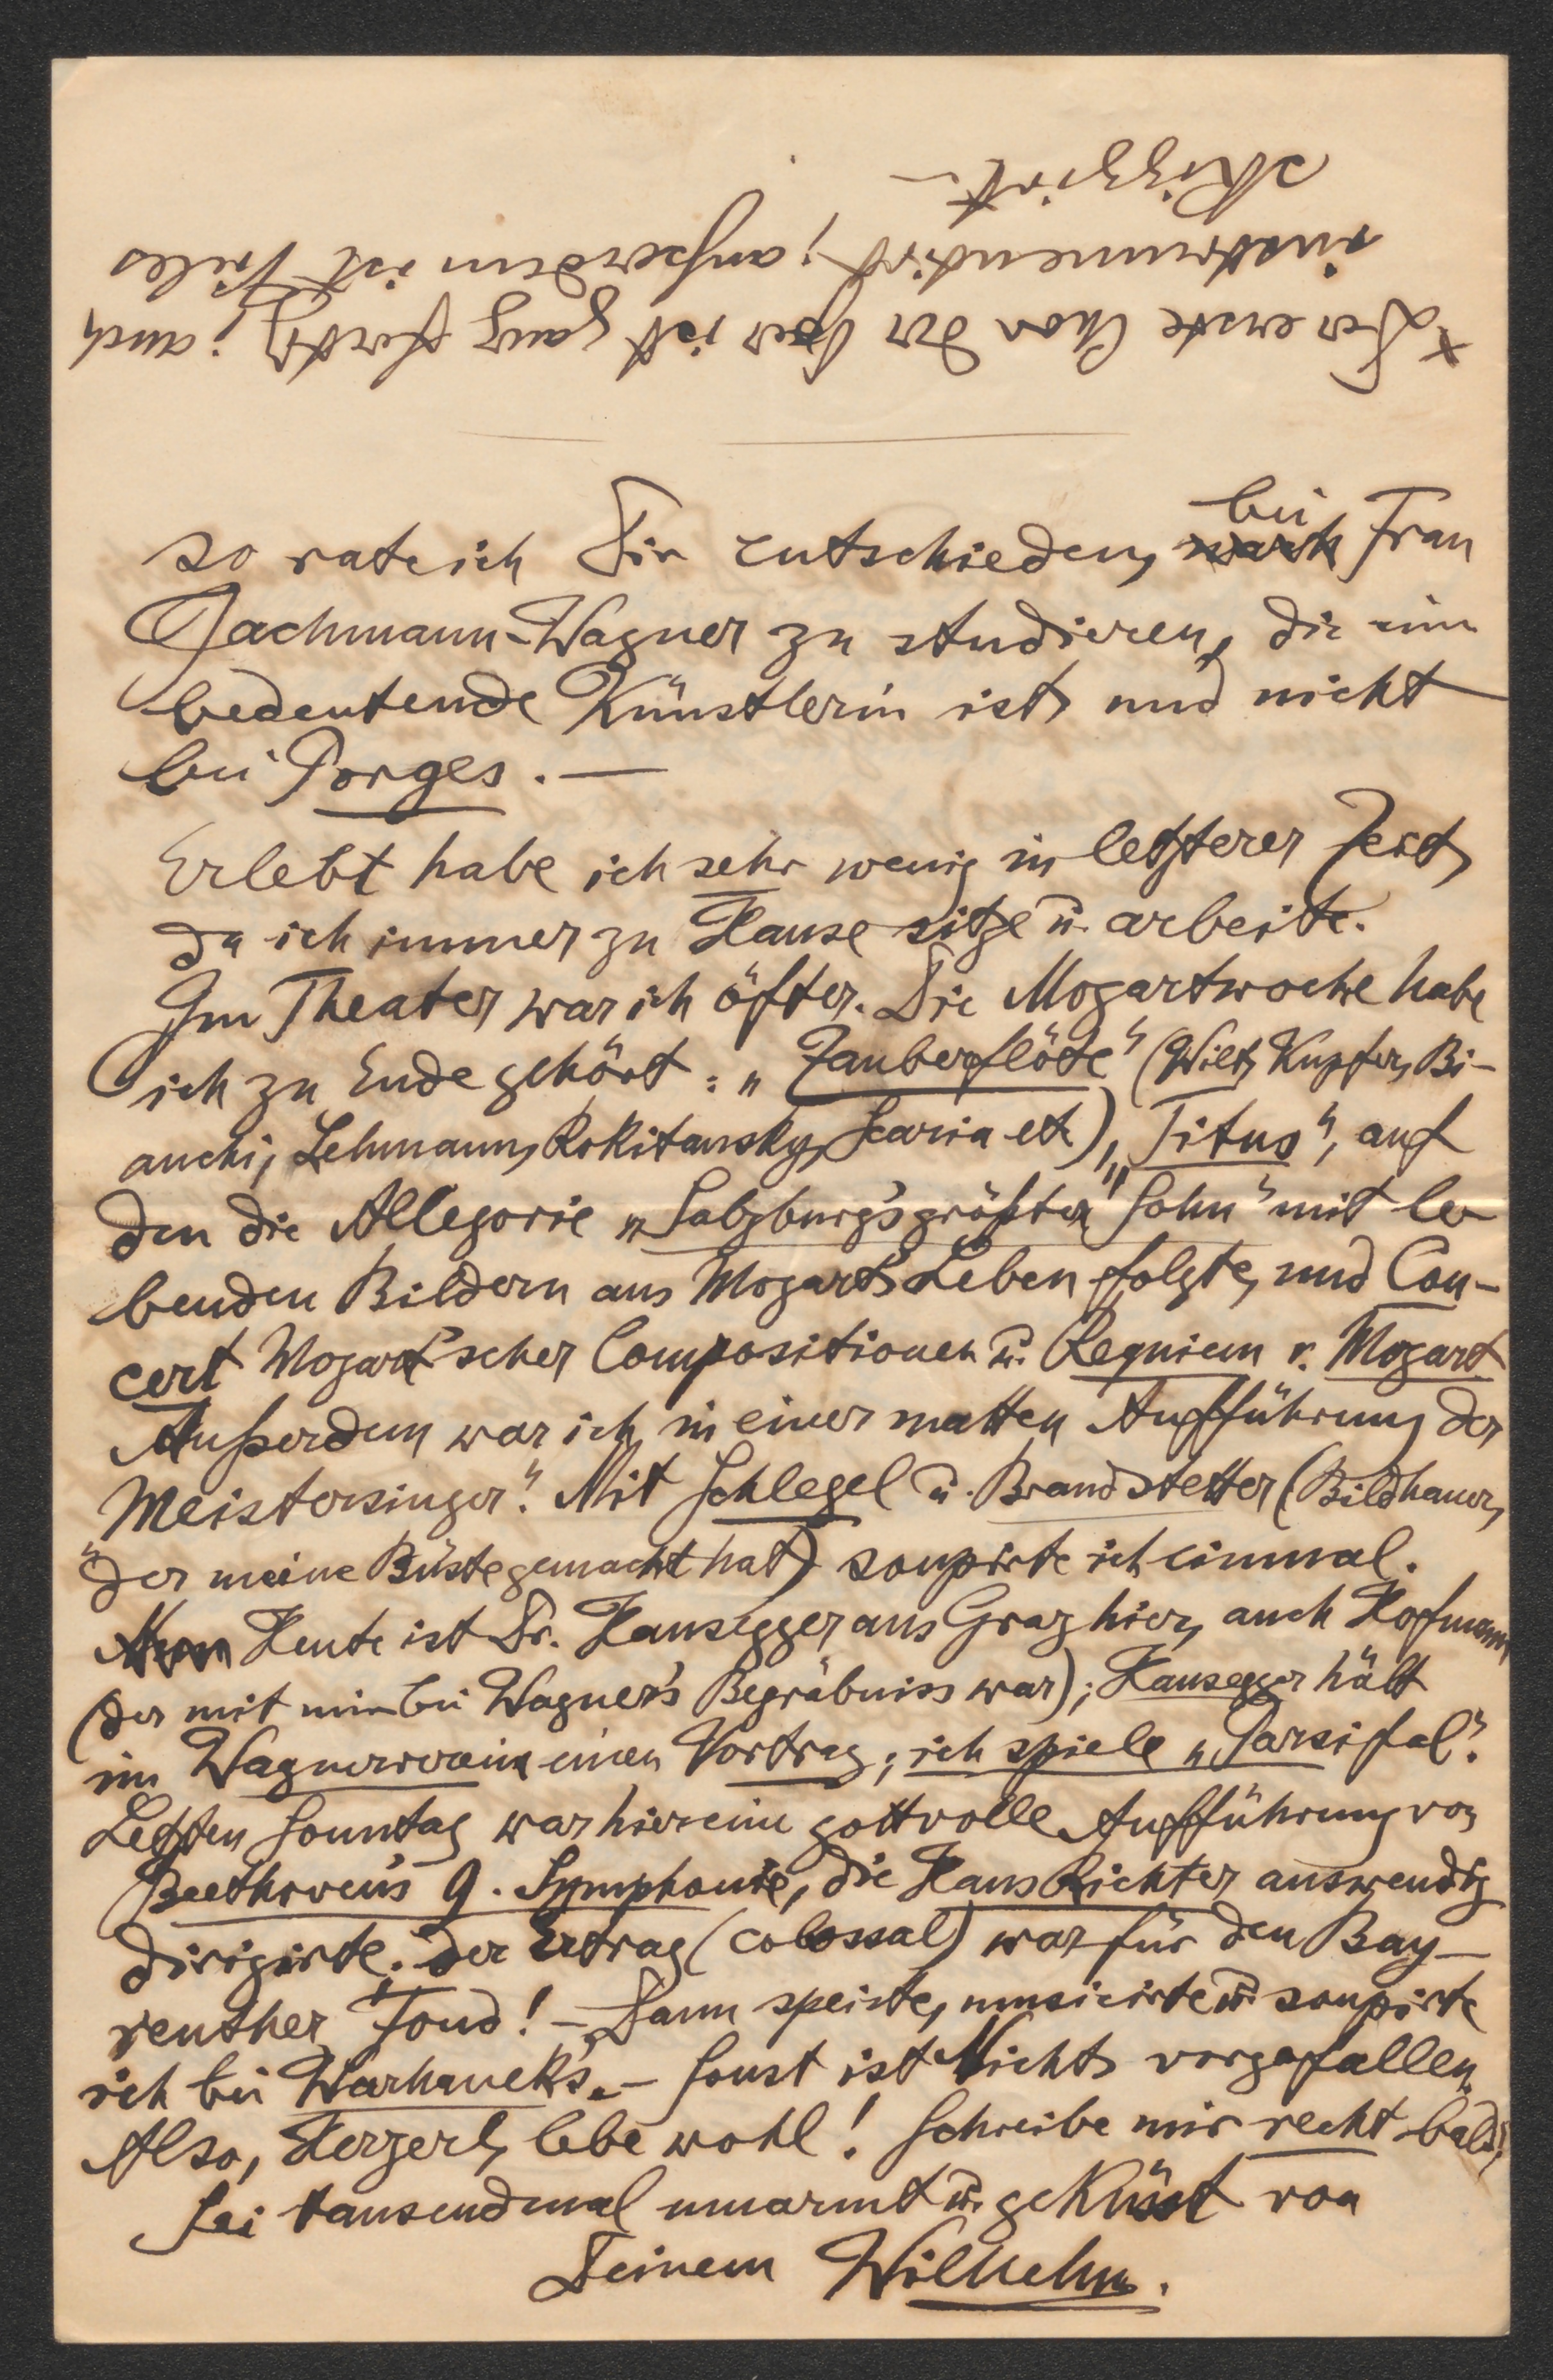 x Der erste Chor der Oper ist ganz fertig; auch
instrumentirt; ausserdem ist Vieles
skizzirt.–
so rate ich Dir entschieden, nach bei Frau
Jachmann-Wagner zu studieren, die eine
bedeutende Künstlerin ist, und nicht
bei Porges. —
Erlebt habe ich sehr wenig in letzterer Zeit,
da ich immer zu Hause sitze u. arbeite.
Im Theater war ich öfter. Die Mozartwoche habe
ich zu Ende gehört: „Zauberflöte“ (Wilt, Kupfer, Bi-
anchi, Lehmann, Rokitansky, Scaria etc), „Titus“, auf
den die Allegorie „Salzburg's größter Sohn“ mit le-
benden Bildern aus Mozart's Leben folgte, und Con-
cert Mozart'scher Compositionen u. Requiem v. Mozart
Außerdem war ich in einer matten Aufführung der
„Meistersinger“. Mit Schlegel u. Brandstetter (Bildhauer,
der meine Büste gemacht hat) soupirte ich einmal.
Heute ist Dr. Hausegger aus Graz hier, auch Hofmann
(der mit mir bei Wagner's Begräbniss war); Hausegger hält
im Wagnerverein einen Vortrag; ich spiele „Parsifal“.
Letzten Sonntag war hier eine gottvolle Aufführung von
Beethoven's 9. Symphonie, die Hans Richter auswendig
dirigirte. Der Ertrag (colossal) war für den Bay-
reuther Fond! – Dann speiste, musicirte u. soupirte
ich bei Warhanek's. – Sonst ist Nichts vorgefallen.
Also, Herzerl, lebe wohl! Schreibe mir recht bald!
Sei tausendmal umarmt u. geküsst von
Deinem Wilhelm.